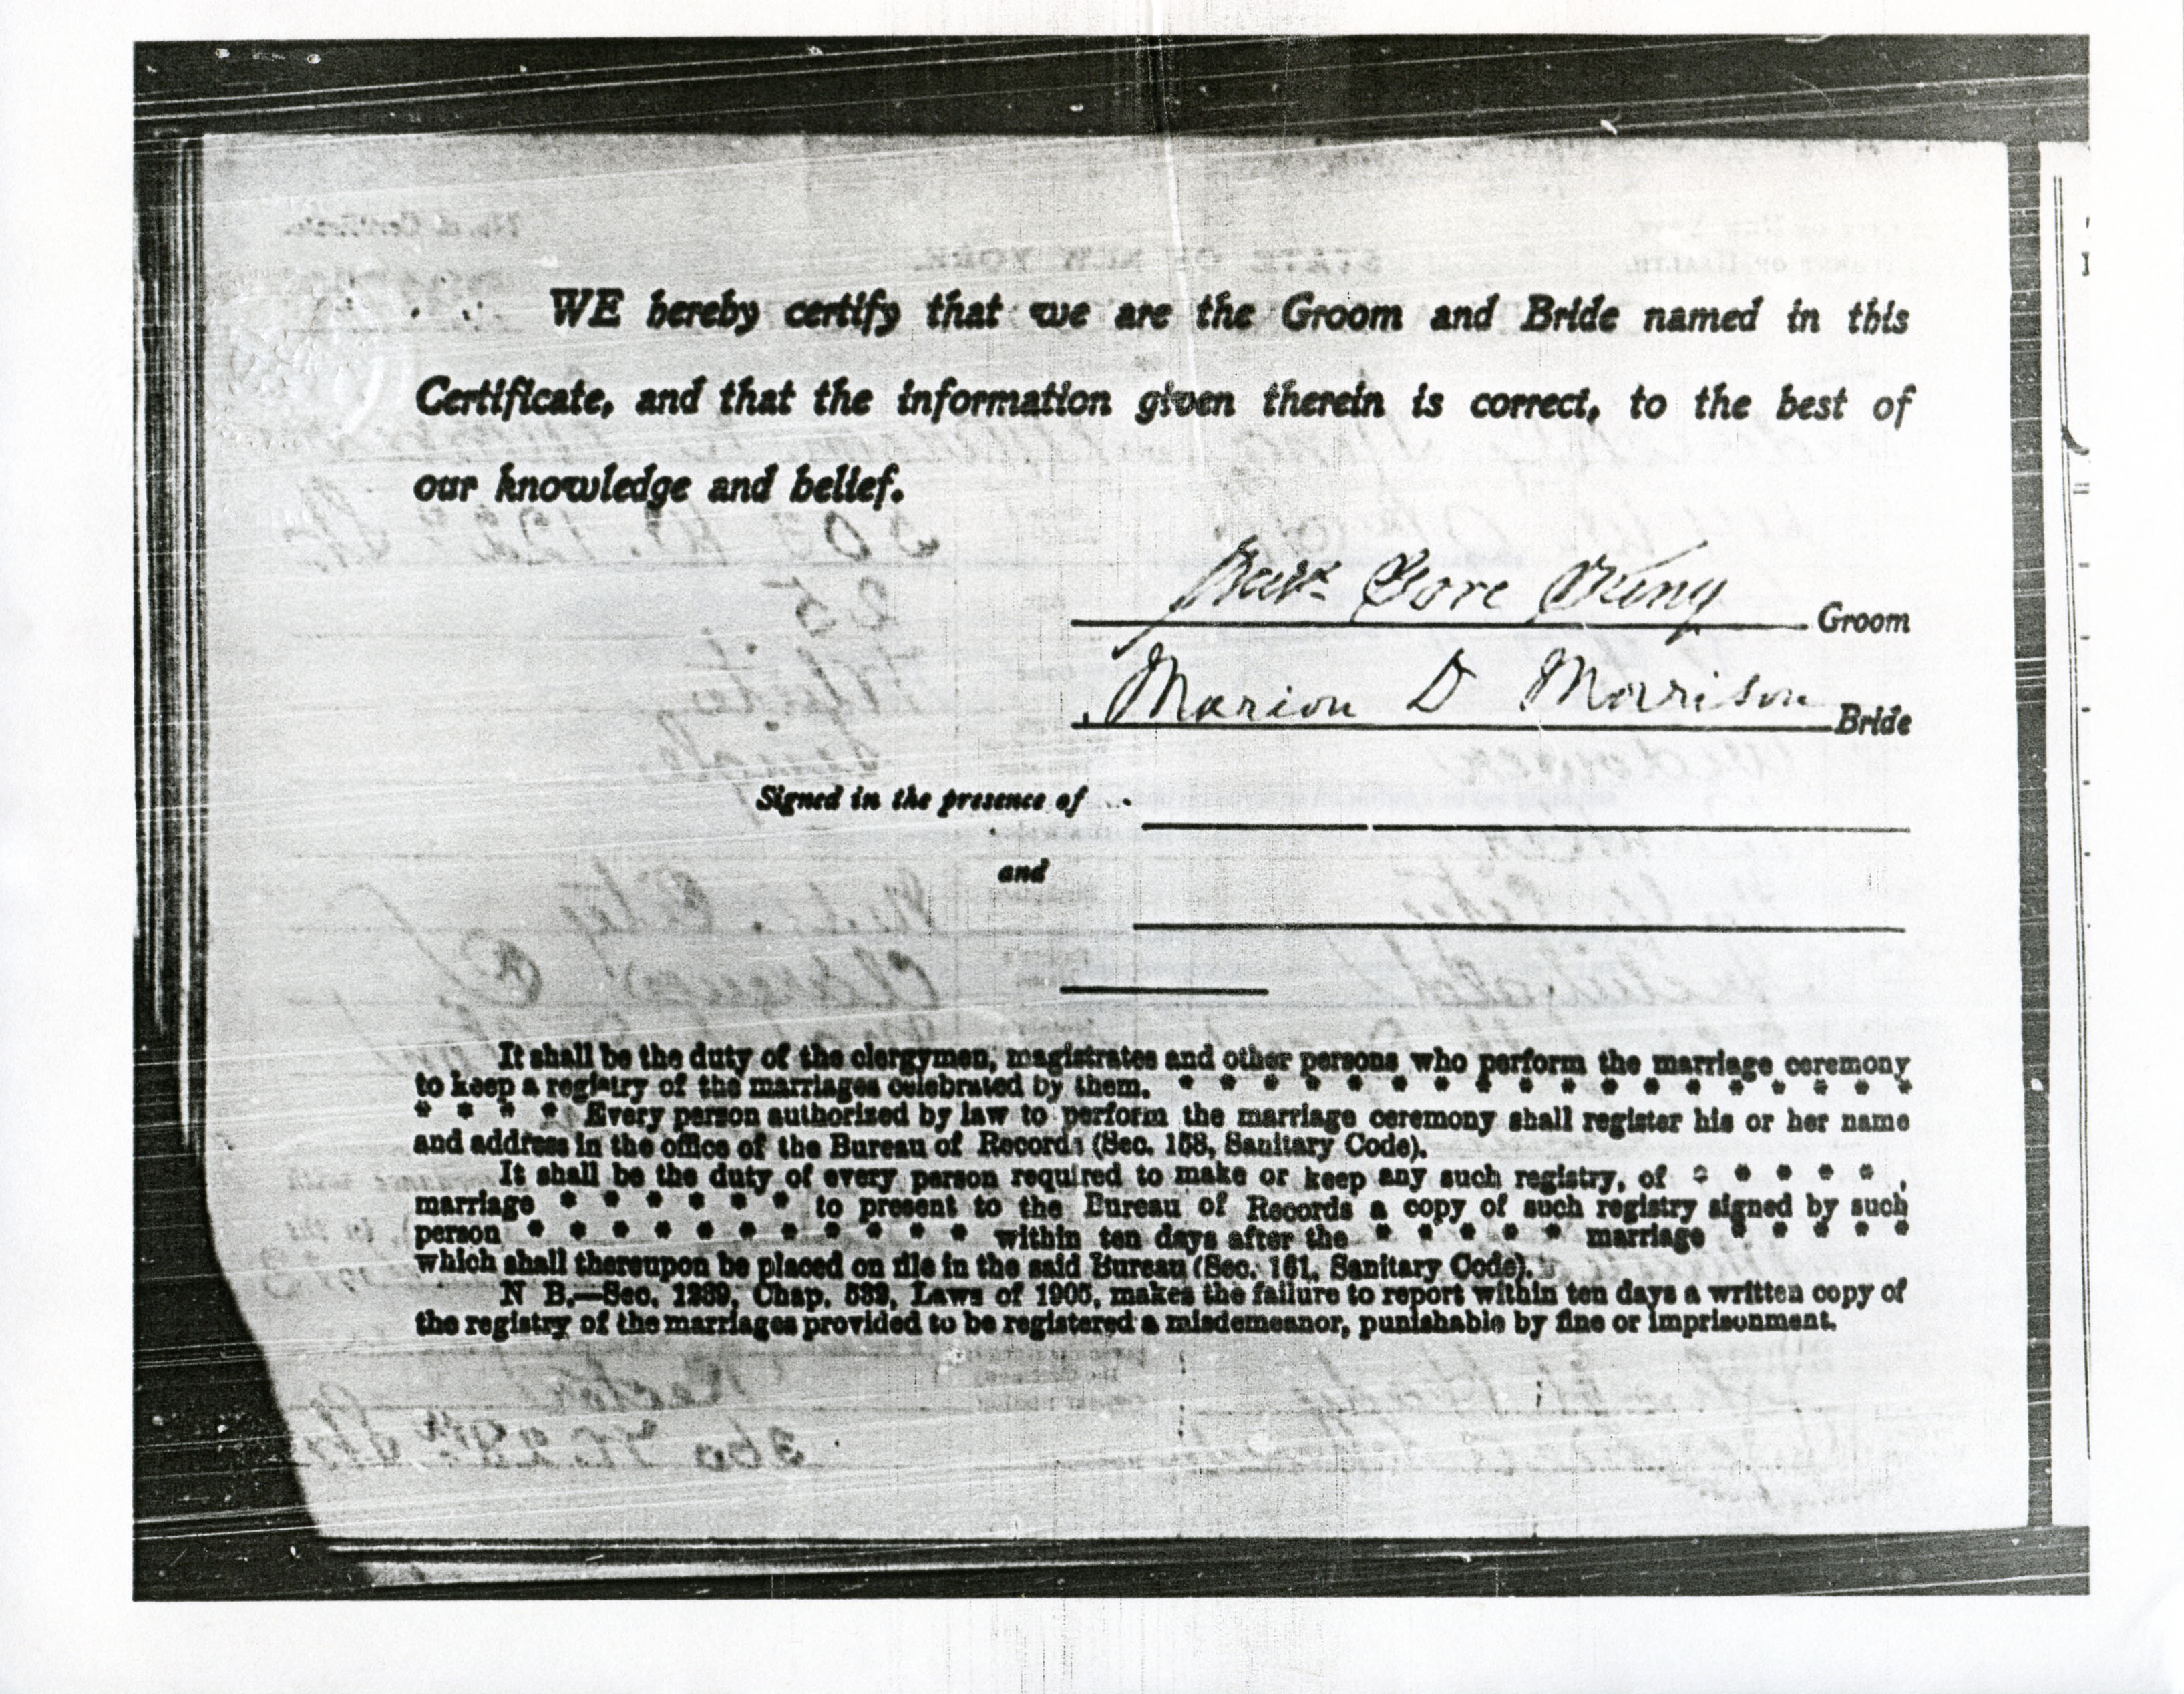 WE hereby certify that we are the Groom and Bride named in this
Certificate, and that the information given therein is correct, to the best of
our knowledge and belief.
Gore King Groom
Marion D Morrison Bride
Signed in the presence of
and
It shall be the duty of the clergymen, magistrates and other persons who perform the marriage ceremony
to keep a registry of the marriages celebrated by them. * * * * * * * * * * * * * * * * * *
* * * * Every person authorized by law to perform the marriage ceremony shall register his or her name
and address in the office of the Bureau of Records (Sec. 158, Sanitary Code).
It shall be the duty of every person required to make or keep any such registry, of * * * * * ,
marriage * * * * * * to present to the Bureau of Records a copy of such registry signed by such
person * * * * * * * * * * * within ten days after the * * * * * marriage * * * * *
which shall thereupon be placed on file in the said Bureau (Sec. 161, Sanitary Code).
N B.—Sec. 1239, Chap. 532, Laws of 1905, makes the failure to report within ten days a written copy of
the registry of the marriages provided to be registered a misdemeanor, punishable by fine or imprisonment.